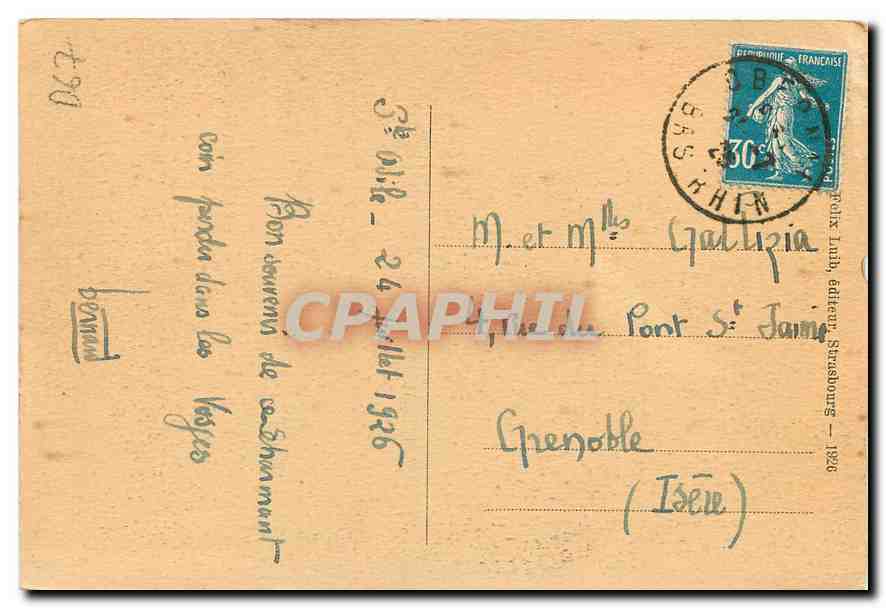 D67
Ste Odile - 24 Juillet 1926
Bon souvenir de ce charmant
coin perdu dans les Vosges
bernard
CPAPHIL
REPUBLIQUE FRANÇAISE
30c
POSTES
OBERNAI
BAS RHIN
M. et Mlles Gallizia
4, Rue du Pont St Jaime
Grenoble
(Isère)
Felix Luib, éditeur, Strasbourg — 1926